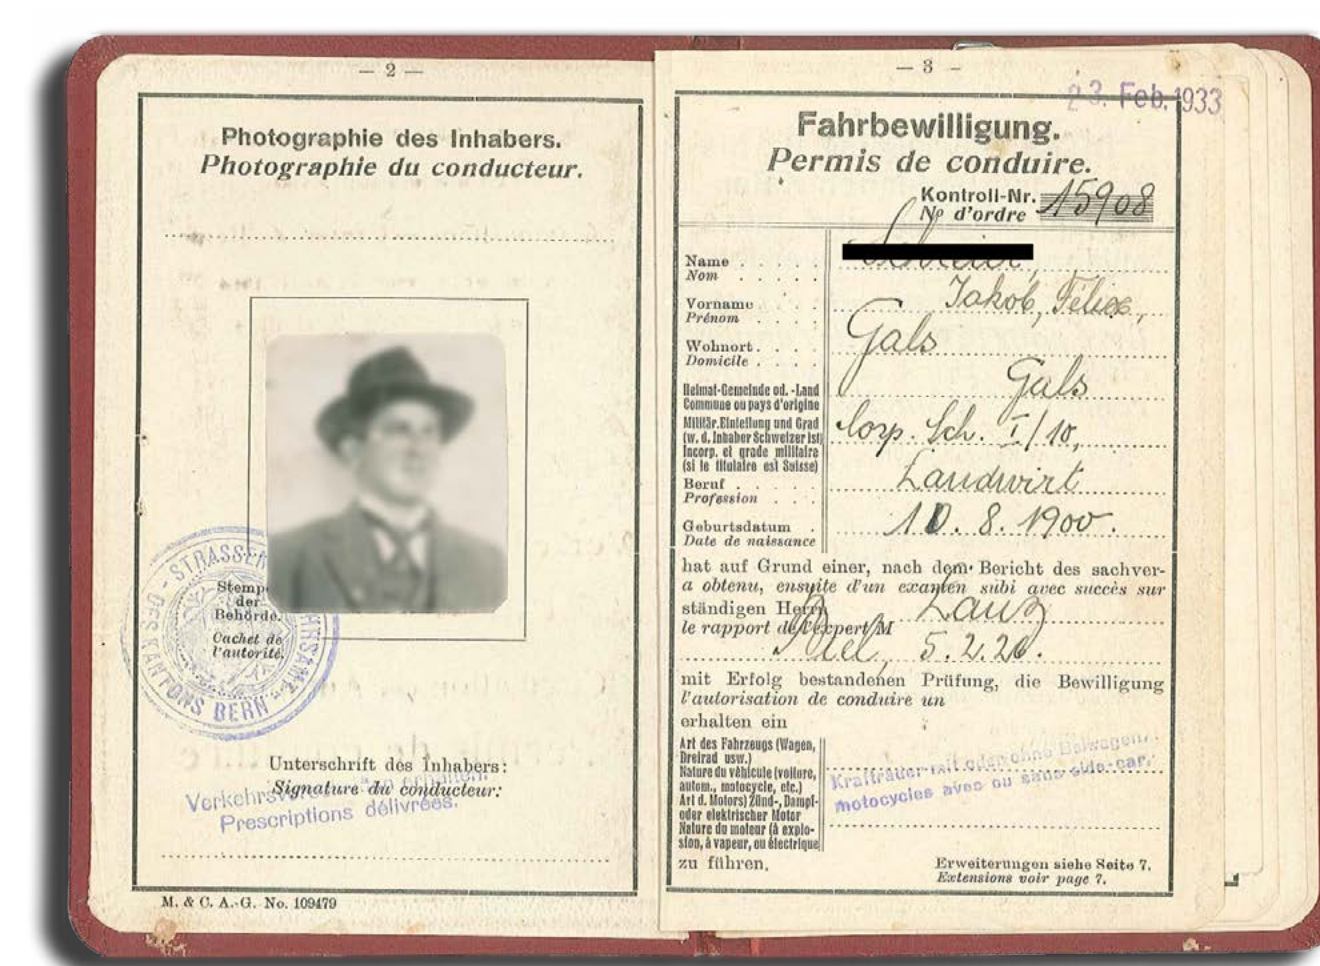 — 2 —
Photographie des Inhabers.
Photographie du conducteur.
STRASSEN
KANTONS BERN
Stemp
der
Behörde.
Cachet de
l'autorité.
Unterschrift des Inhabers:
Signature du conducteur:
Prescriptions délivrées.
M. & C. A.-G. No. 109479
— 3 —
23. Feb. 1933
Fahrbewilligung.
Permis de conduire.
Kontroll-Nr. 15908
No d'ordre
Name
Nom
Vorname Jakob, Félix,
Prénom
Wohnort Gals
Domicile
Heimat-Gemeinde od. -Land Gals
Commune ou pays d'origine
Militär. Einteilung und Grad Corp. Sch. I/10,
(w. d. Inhaber Schweizer ist)
Incorp. et grade militaire
(si le titulaire est Suisse)
Beruf Landwirt
Profession
Geburtsdatum 10. 8. 1900.
Date de naissance
hat auf Grund einer, nach dem Bericht des sachver-
a obtenu, ensuite d'un examen subi avec succès sur
ständigen Herrn
le rapport de l'expert M
Biel, 5. 2. 26.
mit Erfolg bestandenen Prüfung, die Bewilligung
l'autorisation de conduire un
erhalten ein
Art des Fahrzeugs (Wagen,
Dreirad usw.)
Nature du véhicule (voiture,
autom., motocycle, etc.)
Art d. Motors) Zünd-, Dampf-
oder elektrischer Motor
Nature du moteur (à explo-
sion, à vapeur, ou électrique
Krafträder mit oder ohne Beiwagen.
motocycles avec ou sans side-car.
zu führen.
Erweiterungen siehe Seite 7.
Extensions voir page 7.